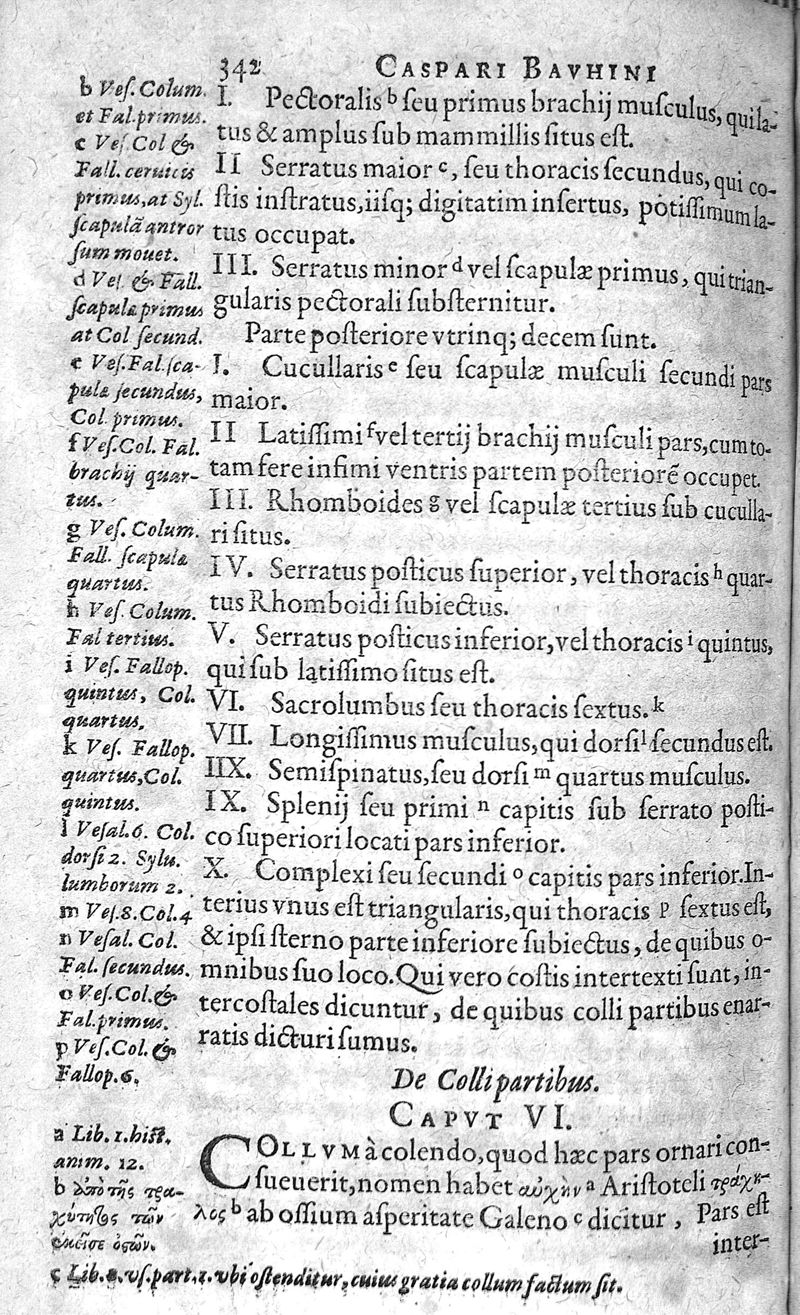 342
CASPARI BAVHINI
b Veſ. Colum.
et Fal. primus.
c Veſ Col &
Fall. ceruicis
primus, at Syl.
ſcapulã antror
ſum mouet.
d Veſ. & Fall.
ſcapulæ primus
at Col ſecund.
e Veſ. Fal. ſca-
pulæ ſecundus,
Col primus.
f Veſ. Col. Fal.
brachij quar-
tus.
g Veſ. Colum.
Fall. ſcapulæ
quartus.
h Veſ. Colum.
Fal tertius.
i Veſ. Fallop.
quintus, Col.
quartus.
k Veſ. Fallop.
quartus, Col.
quintus.
l Veſal. 6. Col.
dorſi 2. Sylu.
lumborum 2.
m Veſ. 8. Col. 4
n Veſal. Col.
Fal. ſecundus.
o Veſ. Col. &
Fal. primus.
p Veſ. Col. &
Fallop. 6.
I. Pectoralis b ſeu primus brachij muſculus, qui la-
tus & amplus ſub mammillis ſitus eſt.
II Serratus maior c, ſeu thoracis ſecundus, qui co-
ſtis inſtratus, iiſq; digitatim inſertus, potiſſimum la-
tus occupat.
III. Serratus minor d vel ſcapulæ primus, qui trian-
gularis pectorali ſubſternitur.
Parte poſteriore vtrinq; decem ſunt.
I. Cucullaris e ſeu ſcapulæ muſculi ſecundi pars
maior.
II Latiſſimi f vel tertij brachij muſculi pars, cum to-
tam fere infimi ventris partem poſteriorẽ occupet.
III. Rhomboides g vel ſcapulæ tertius ſub cuculla-
ri ſitus.
IV. Serratus poſticus ſuperior, vel thoracis h quar-
tus Rhomboidi ſubiectus.
V. Serratus poſticus inferior, vel thoracis i quintus,
qui ſub latiſſimo ſitus eſt.
VI. Sacrolumbus ſeu thoracis ſextus. k
VII. Longiſſimus muſculus, qui dorſi l ſecundus eſt.
IIX. Semiſpinatus, ſeu dorſi m quartus muſculus.
IX. Splenij ſeu primi n capitis ſub ſerrato poſti-
co ſuperiori locati pars inferior.
X. Complexi ſeu ſecundi o capitis pars inferior. In-
terius vnus eſt triangularis, qui thoracis p ſextus eſt,
& ipſi ſterno parte inferiore ſubiectus, de quibus o-
mnibus ſuo loco. Qui vero coſtis intertexti ſunt, in-
tercoſtales dicuntur, de quibus colli partibus enar-
ratis dicturi ſumus.
De Colli partibus.
CAPVT VI.
a Lib. 1. hiſt.
anim. 12.
b ἀπὸ τῆς τρα-
χύτητος τῶν
ἐκεῖσε ὀσῶν.
COLLVM à colendo, quod hæc pars ornari con-
ſueuerit, nomen habet αὐχὴν a Ariſtoteli τράχη-
λος b ab oſſium aſperitate Galeno c dicitur, Pars eſt
inter-
c Lib. 8. vſ. part. 1. vbi oſtenditur, cuius gratia collum factum ſit.